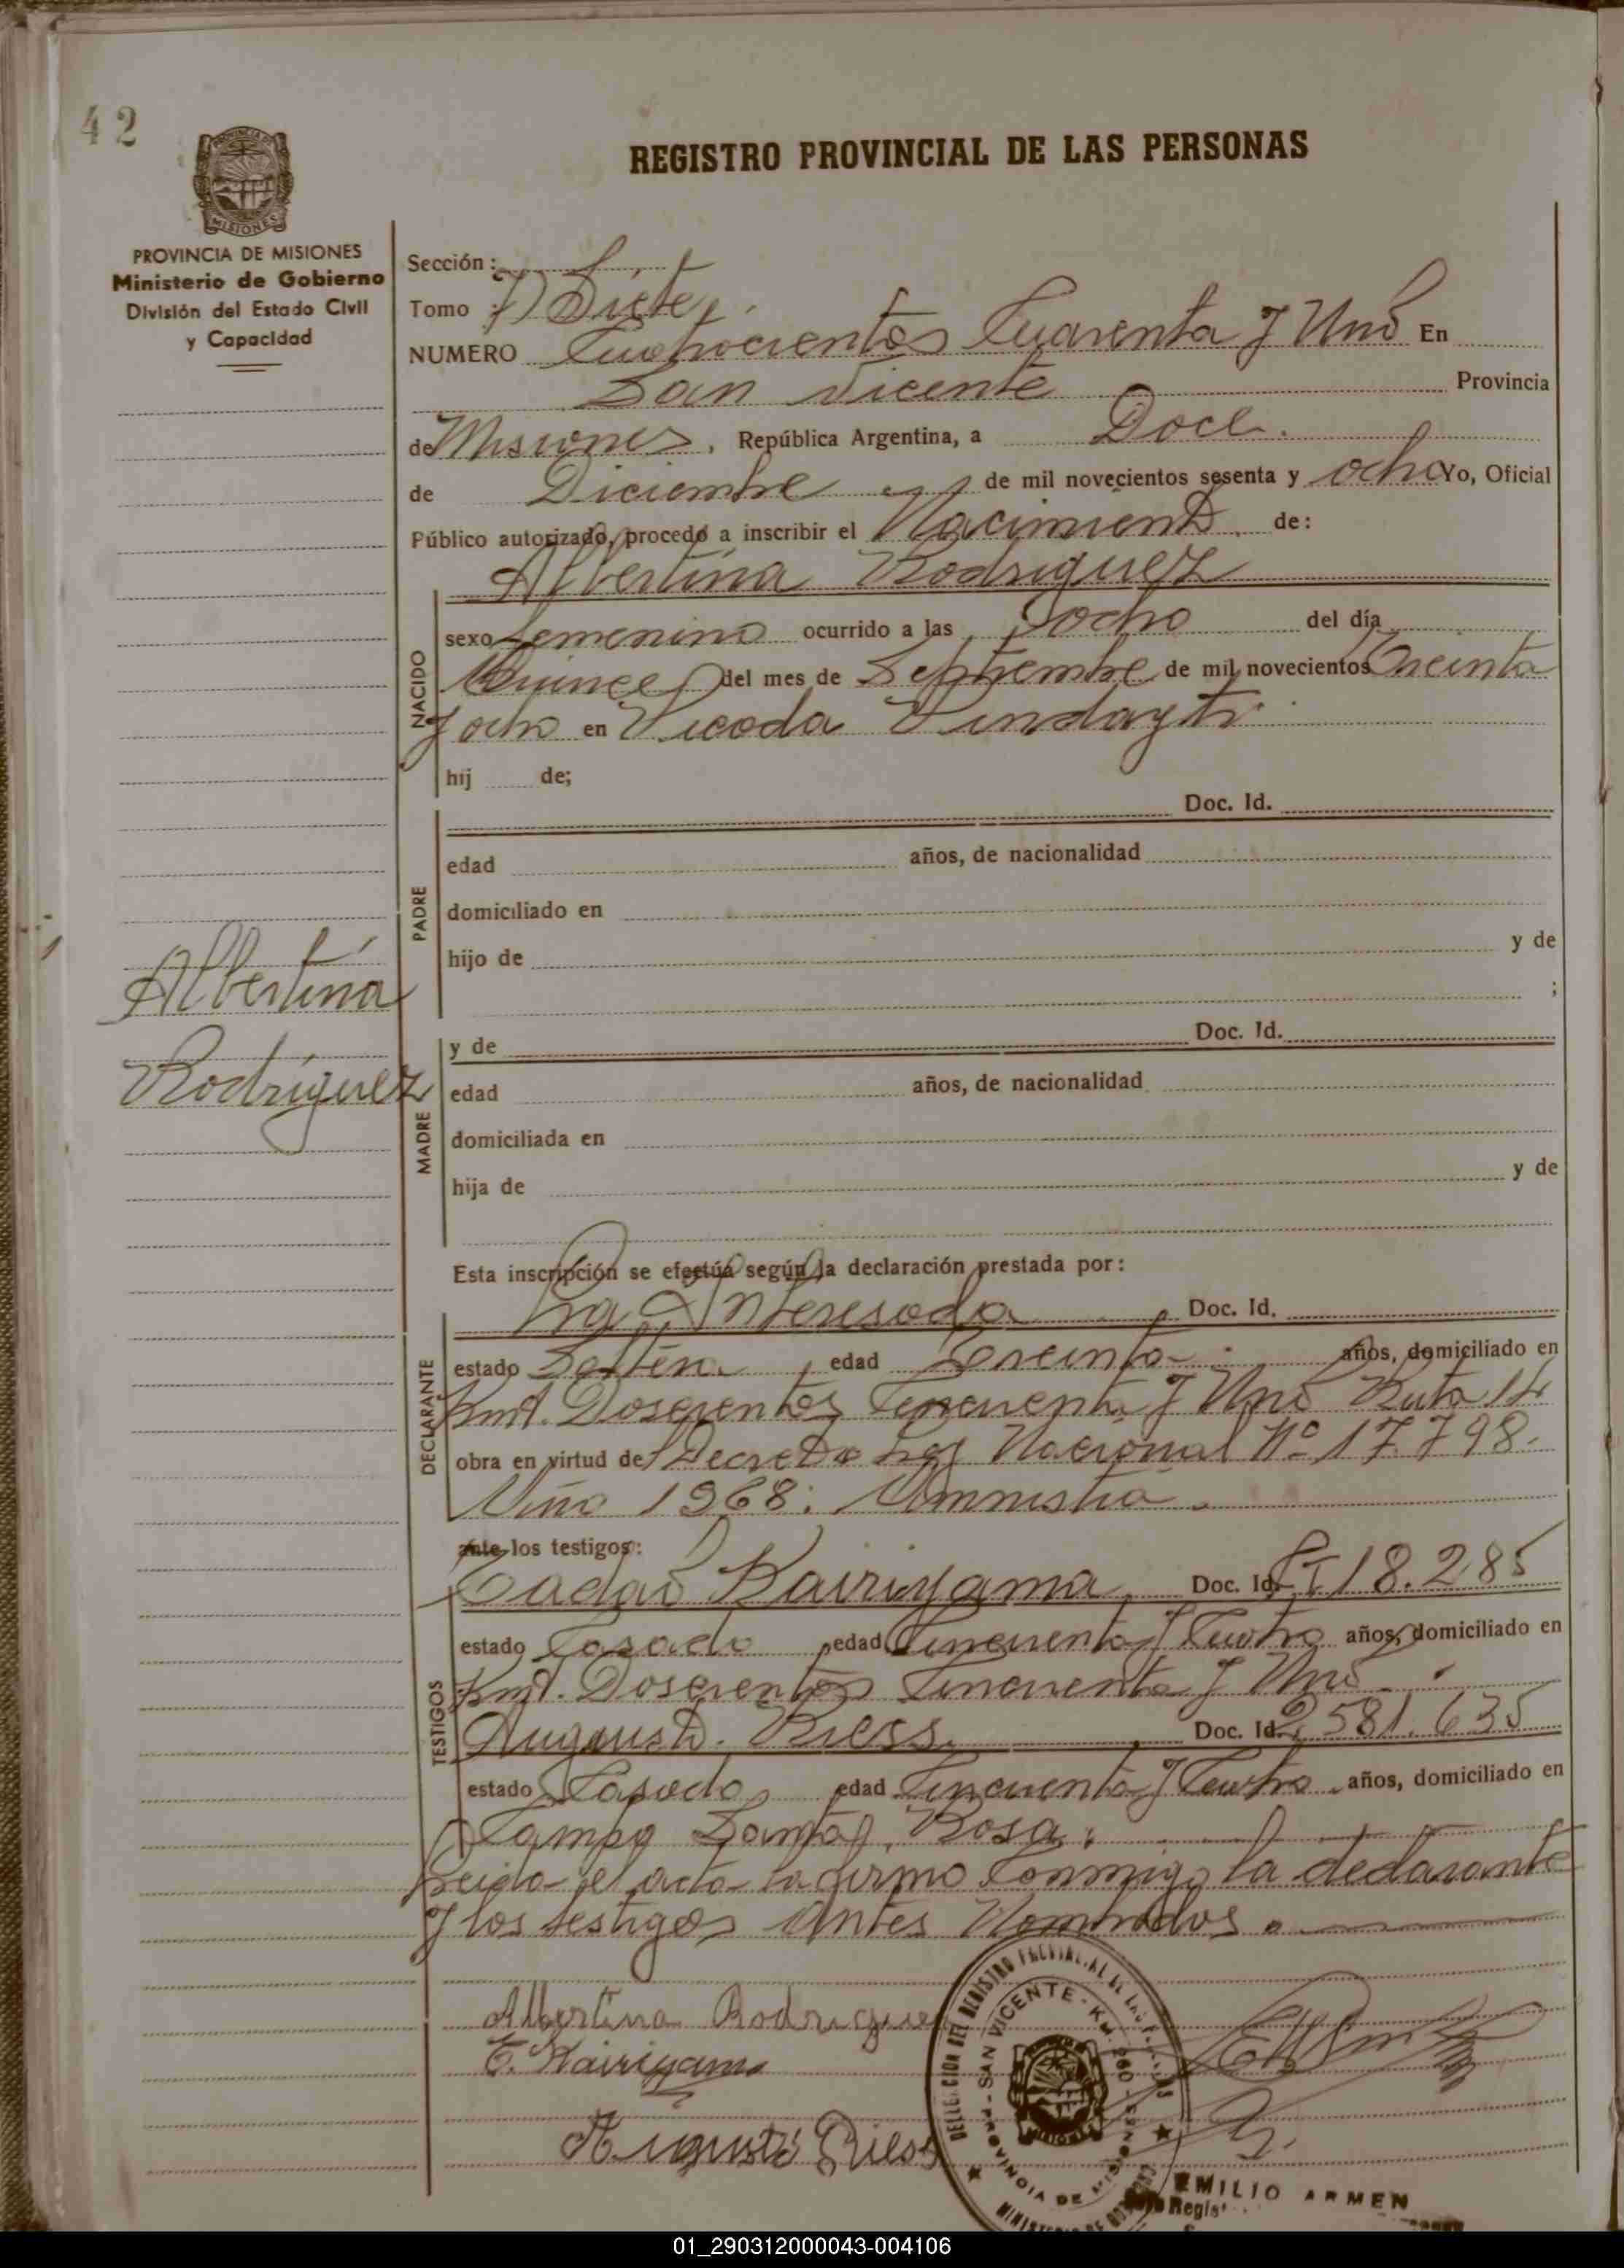 42
REGISTRO PROVINCIAL DE LAS PERSONAS
PROVINCIA DE MISIONES
Ministerio de Gobierno
División del Estado Civil
y Capacidad
Sección:
Tomo Siete
NUMERO Cuatrocientos Cuarenta y Uno En
San Vicente Provincia
de Misiones, República Argentina, a Doce
de Diciembre de mil novecientos sesenta y ocho Yo, Oficial
Público autorizado, procedo a inscribir el Nacimiento de:
Albertina Rodriguez
NACIDO
sexo Femenino ocurrido a las ocho del día
Quince del mes de Septiembre de mil novecientos Treinta
y ocho en Picada
hij de;
PADRE
Doc. Id.
edad años, de nacionalidad
domiciliado en
hijo de y de
;
Albertina
Rodriguez
MADRE
y de Doc. Id.
edad años, de nacionalidad
domiciliada en
hija de y de
Esta inscripción se efectúa según la declaración prestada por:
DECLARANTE
La Interesada Doc. Id.
estado Soltera, edad Treinta años, domiciliado en
Kmt. Doscientos Cincuenta y Uno Ruta 14
obra en virtud de Decreto Ley Nacional Nº 17.798.
Año 1968: Amnistia.
ante los testigos:
TESTIGOS
Tadao Kairiyama Doc. Id. 18.285
estado Casado, edad Cincuenta y Cuatro años, domiciliado en
Kmt. Doscientos Cincuenta y Uno.
Augusto Riess, Doc. Id. 2.581.635
estado Casado edad Cincuenta y Cuatro años, domiciliado en
Campo Santa Rosa.
Leida el acta la firma conmigo la declarante
y los testigos antes Nombrados.
Albertina Rodriguez
T. Kairiyama
Augusto Riess
SAN VICENTE - KM. 260
PROVINCIA DE MISIONES
EMILIO ARMEN
01_290312000043-004106